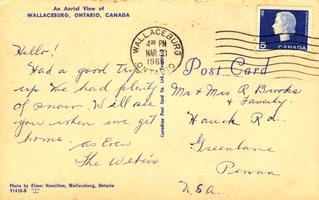 An Aerial View of
WALLACEBURG, ONTARIO, CANADA
Hello!
Had a good trip
up. We had plenty
of snow. We'll see
you when we get
home.
as Ever
The
WALLACEBURG
4 30 PM
MAR 30
1966
ONTARIO
5 CANADA
Post Card
Mr & Mrs R. Brooks
& Family.
Hauck Rd.
Greentane
Penna
U.S.A.
Canadian Post Card Co. Ltd.
Photo by Elmer Hamilton, Wallaceburg, Ontario
91410-B